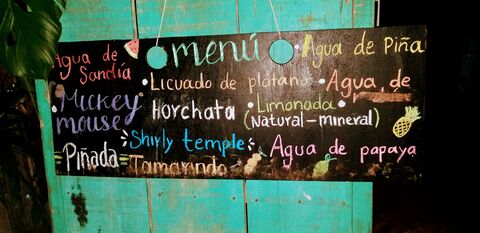 menú
Agua de
Sandía
Agua de Piña
Licuado de plátano
Agua de
Mickey
mouse
Horchata
Limonada
(Natural-mineral)
Shirly temple
Piñada
Tamarindo
Agua de papaya